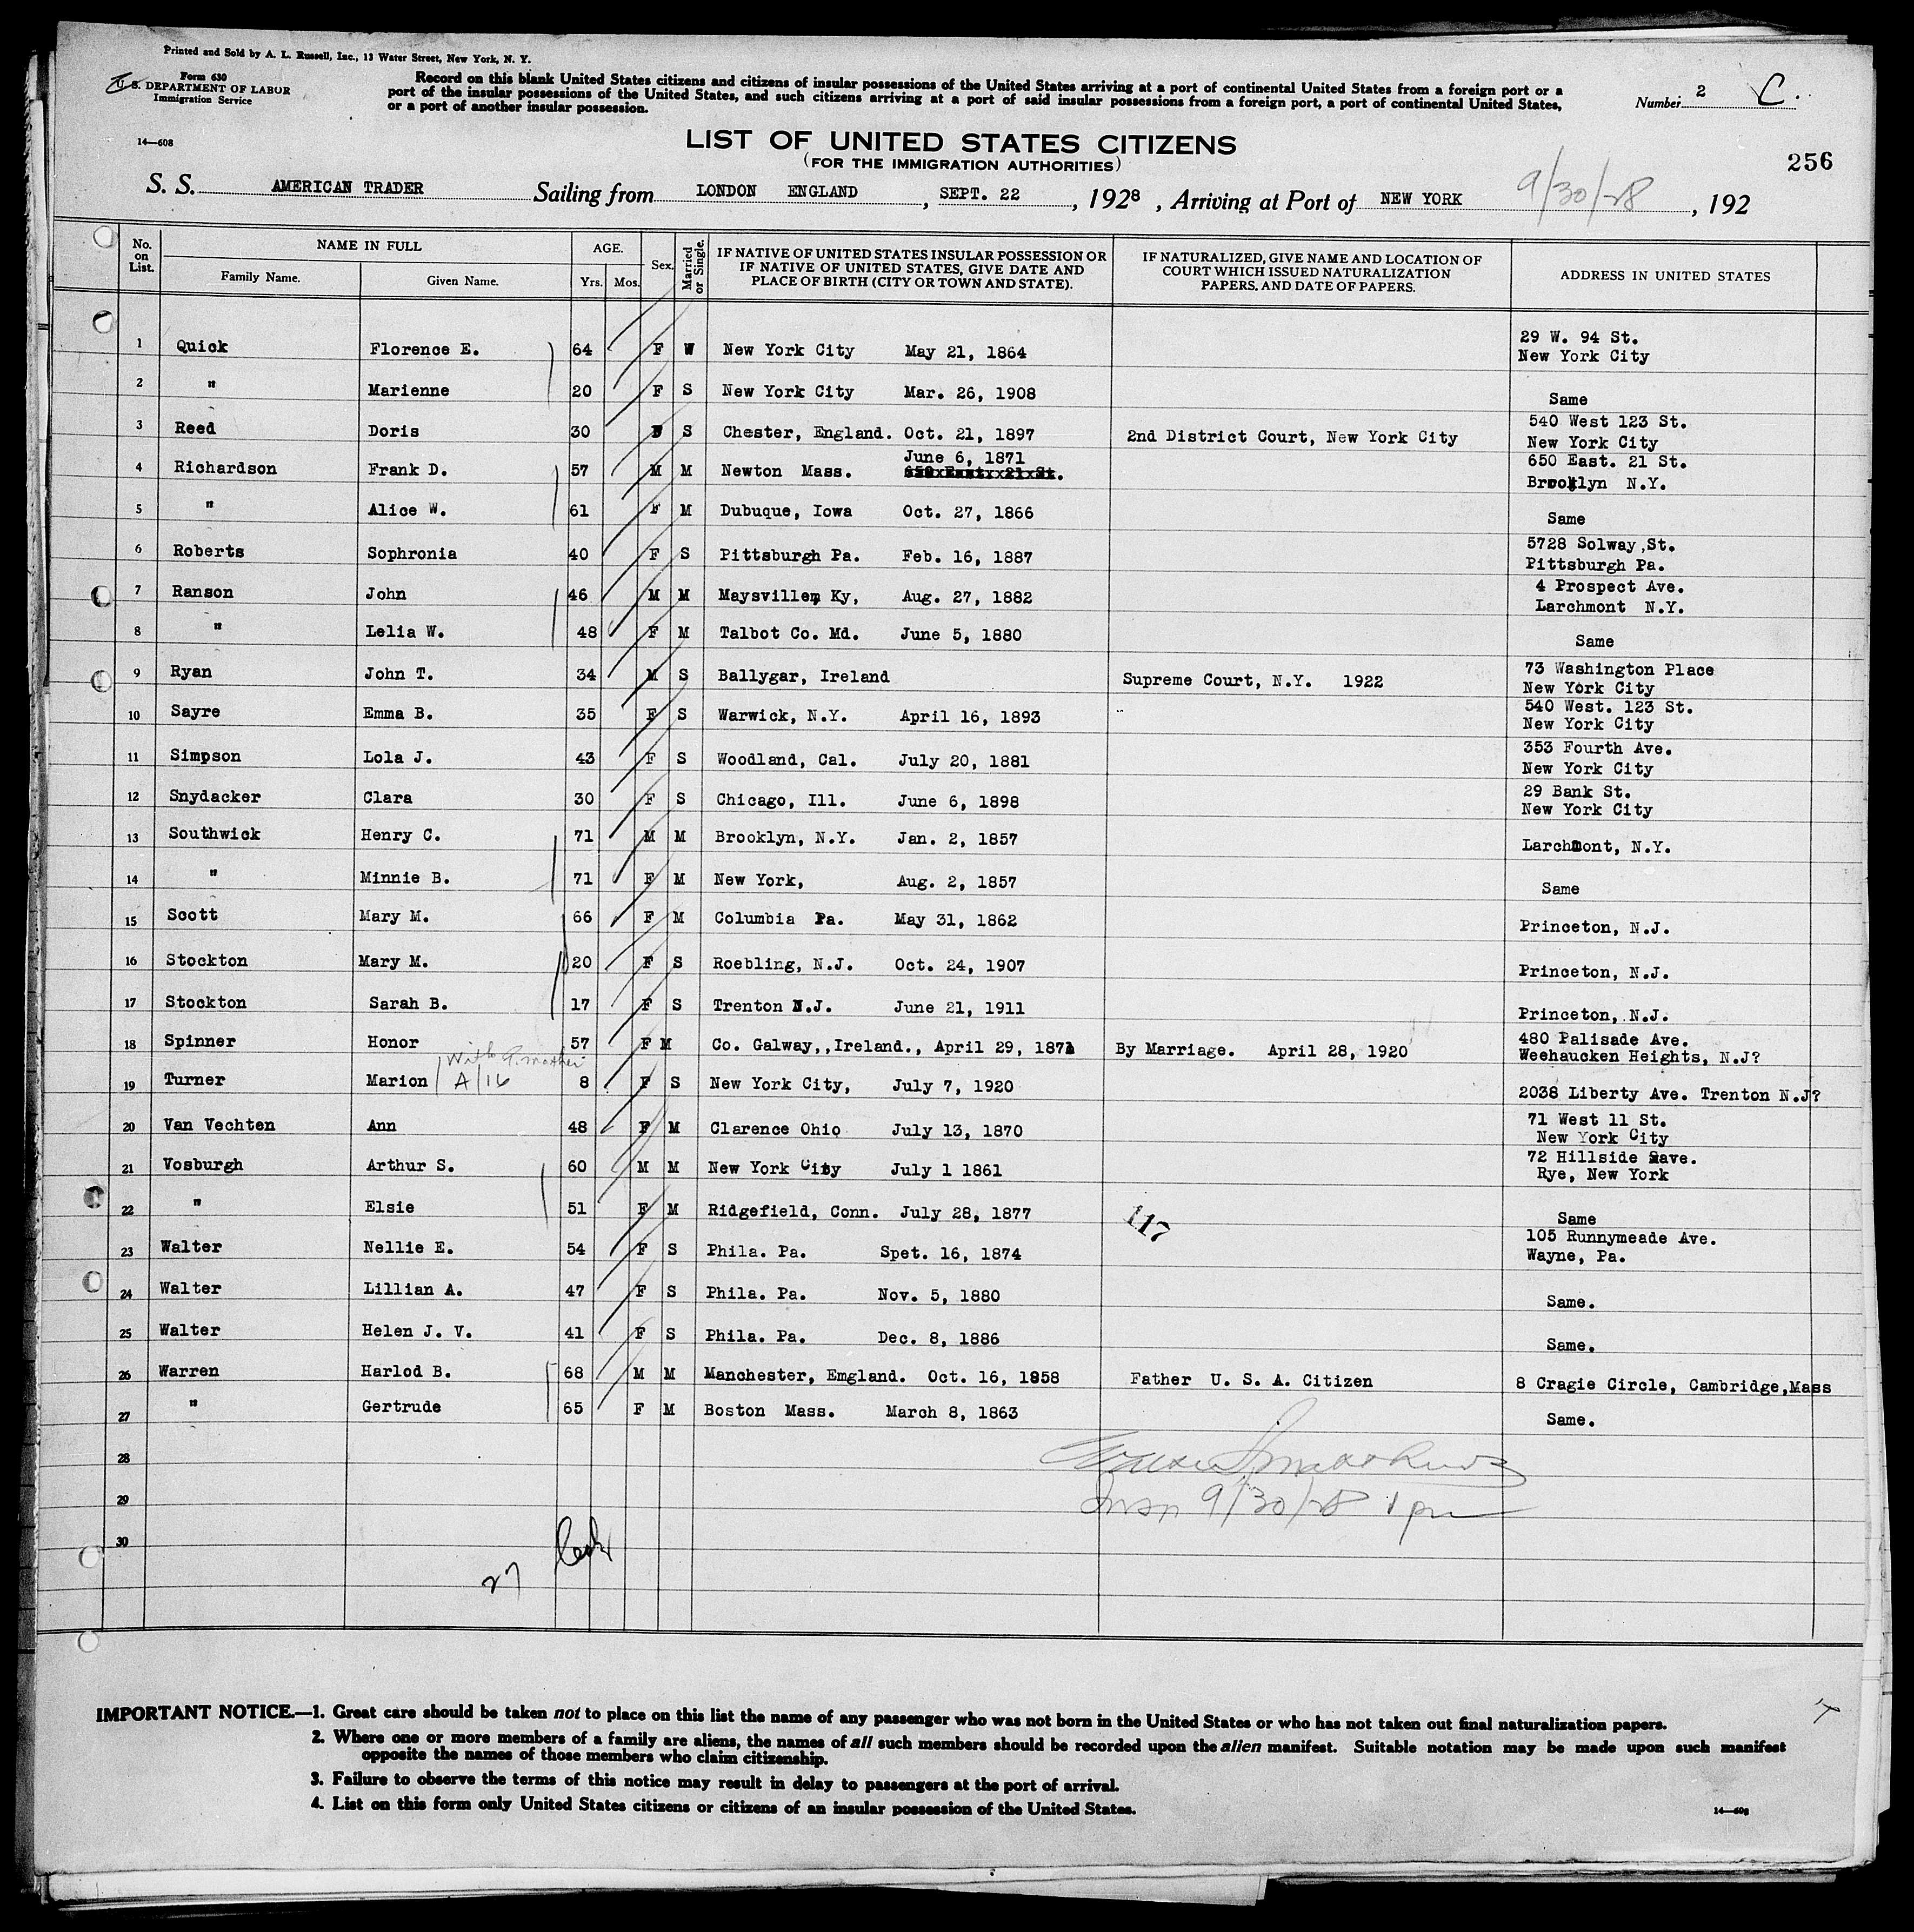 Printed and Sold by A. L. Russell, Inc., 13 Water Street, New York, N. Y.
Form 630
U. S. DEPARTMENT OF LABOR
Immigration Service
14—608
Record on this blank United States citizens and citizens of insular possessions of the United States arriving at a port of continental United States from a foreign port or a
port of the insular possessions of the United States, and such citizens arriving at a port of said insular possessions from a foreign port, a port of continental United States,
or a port of another insular possession.
Number 2 C.
LIST OF UNITED STATES CITIZENS
(FOR THE IMMIGRATION AUTHORITIES)
256
S. S. AMERICAN TRADER Sailing from LONDON ENGLAND, SEPT. 22, 1928, Arriving at Port of NEW YORK 9/30/28, 192
No. on List. NAME IN FULL Family Name. Given Name. AGE. Yrs. Mos. Sex. Married or Single. IF NATIVE OF UNITED STATES INSULAR POSSESSION OR IF NATIVE OF UNITED STATES, GIVE DATE AND PLACE OF BIRTH (CITY OR TOWN AND STATE). IF NATURALIZED, GIVE NAME AND LOCATION OF COURT WHICH ISSUED NATURALIZATION PAPERS, AND DATE OF PAPERS. ADDRESS IN UNITED STATES
1 Quick Florence E. 64 F W New York City May 21, 1864 29 W. 94 St. New York City
2 " Marienne 20 F S New York City Mar. 26, 1908 Same
3 Reed Doris 30 F S Chester, England. Oct. 21, 1897 2nd District Court, New York City 540 West 123 St. New York City
4 Richardson Frank D. 57 M M Newton Mass. June 6, 1871 650 East. 21 St. Brooklyn N.Y.
5 " Alice W. 61 F M Dubuque, Iowa Oct. 27, 1866 Same
6 Roberts Sophronia 40 F S Pittsburgh Pa. Feb. 16, 1887 5728 Solway,St. Pittsburgh Pa.
7 Ranson John 46 M M Maysville, Ky, Aug. 27, 1882 4 Prospect Ave. Larchmont N.Y.
8 " Lelia W. 48 F M Talbot Co. Md. June 5, 1880 Same
9 Ryan John T. 34 M S Ballygar, Ireland Supreme Court, N.Y. 1922 73 Washington Place New York City
10 Sayre Emma B. 35 F S Warwick, N.Y. April 16, 1893 540 West. 123 St. New York City
11 Simpson Lola J. 43 F S Woodland, Cal. July 20, 1881 353 Fourth Ave. New York City
12 Snydacker Clara 30 F S Chicago, Ill. June 6, 1898 29 Bank St. New York City
13 Southwick Henry C. 71 M M Brooklyn, N.Y. Jan. 2, 1857 Larchmont, N.Y.
14 " Minnie B. 71 F M New York, Aug. 2, 1857 Same
15 Scott Mary M. 66 F M Columbia Pa. May 31, 1862 Princeton, N.J.
16 Stockton Mary M. 20 F S Roebling, N.J. Oct. 24, 1907 Princeton, N.J.
17 Stockton Sarah B. 17 F S Trenton N.J. June 21, 1911 Princeton, N.J.
18 Spinner Honor 57 F M Co. Galway,,Ireland., April 29, 1871 By Marriage. April 28, 1920 480 Palisade Ave. Weehaucken Heights, N.J?
With G. mother
19 Turner Marion A/16 8 F S New York City, July 7, 1920 2038 Liberty Ave. Trenton N.J?
20 Van Vechten Ann 48 F M Clarence Ohio July 13, 1870 71 West 11 St. New York City
21 Vosburgh Arthur S. 60 M M New York City July 1 1861 72 Hillside Ave. Rye, New York
22 " Elsie 51 F M Ridgefield, Conn. July 28, 1877 117 Same
23 Walter Nellie E. 54 F S Phila. Pa. Spet. 16, 1874 105 Runnymeade Ave. Wayne, Pa.
24 Walter Lillian A. 47 F S Phila. Pa. Nov. 5, 1880 Same.
25 Walter Helen J. V. 41 F S Phila. Pa. Dec. 8, 1886 Same.
26 Warren Harlod B. 68 M M Manchester, Emgland. Oct. 16, 1858 Father U. S. A. Citizen 8 Cragie Circle, Cambridge,Mass
27 " Gertrude 65 F M Boston Mass. March 8, 1863 Same.
28
29 9/30/28 1 pm
30
27
IMPORTANT NOTICE.—1. Great care should be taken not to place on this list the name of any passenger who was not born in the United States or who has not taken out final naturalization papers.
2. Where one or more members of a family are aliens, the names of all such members should be recorded upon the alien manifest. Suitable notation may be made upon such manifest
opposite the names of those members who claim citizenship.
3. Failure to observe the terms of this notice may result in delay to passengers at the port of arrival.
4. List on this form only United States citizens or citizens of an insular possession of the United States.
14—608